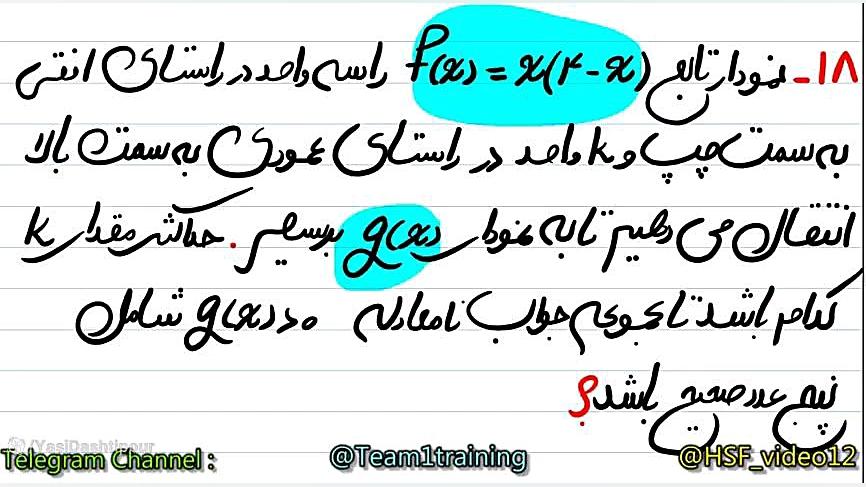 ۱۸- نمودار تابع f(x) = x(۴-x) را سه واحد در راستای افقی
به سمت چپ و k واحد در راستای عمودی به سمت بالا
انتقال می دهیم تا به نمودار g(x) برسیم. حداکثر مقدار k
کدام باشد تا مجموعه جواب نامعادله g(x) > ۰ شامل
پنج عدد صحیح باشد؟
/YasiDashtipour
Telegram Channel : @Team1training @HSF_video12